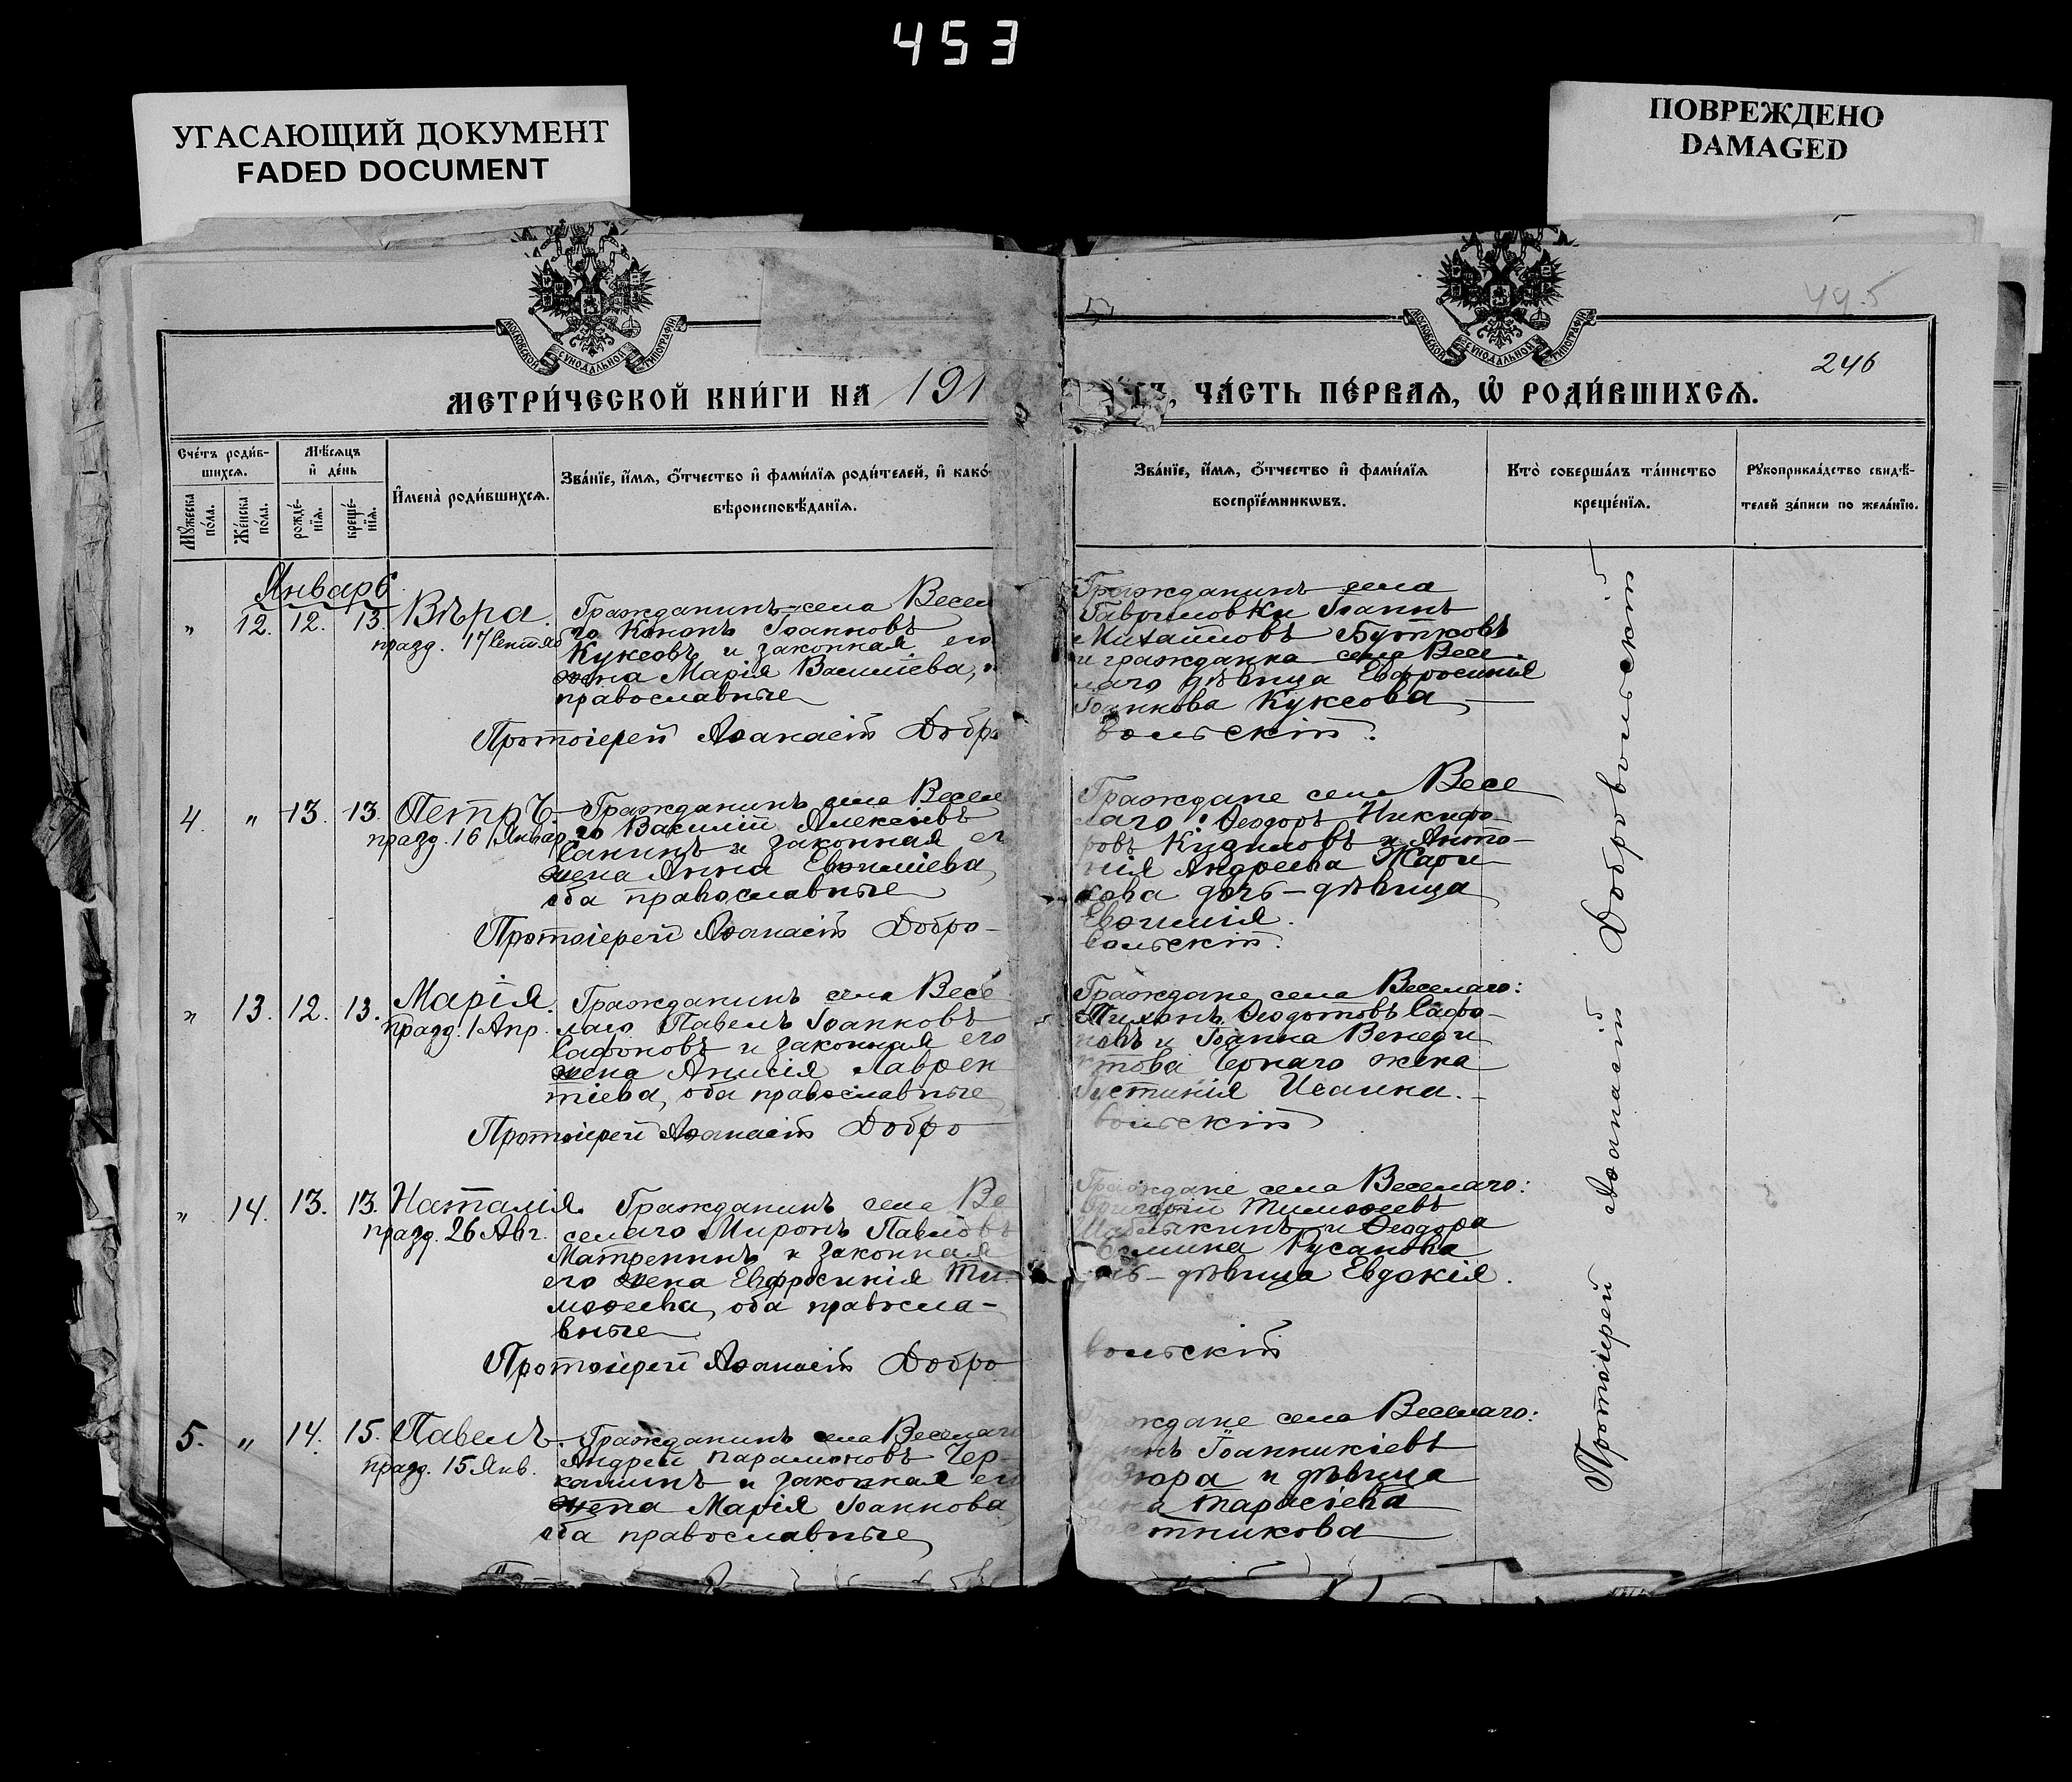 453
УГАСАЮЩИЙ ДОКУМЕНТ
FADED DOCUMENT
ПОВРЕЖДЕНО
DAMAGED
МОСКОВСКОЙ СѴНОДАЛЬНОЙ ТИПОГРАФІИ
МОСКОВСКОЙ СѴНОДАЛЬНОЙ ТИПОГРАФІИ
445
246
МЕТРИ́ЧЕСКОЙ КНИ́ГИ НА 191
ЧА́СТЬ ПЕ́РВАѦ, Ѽ РОДИ́ВШИХСѦ.
Сче́тъ роди́в-
шихсѧ.
Мѣ́сѧцъ
и҆ де́нь
Мꙋ́жеска
по́ла.
Же́нска
по́ла.
рожде́-
нїѧ.
креще́-
нїѧ.
И҆мена̀ роди́вшихсѧ.
Зва́нїе, и҆́мѧ, ѻ҆́тчество и҆ фами́лїѧ роди́телей, и҆ како́
вѣроисповѣ́данїѧ.
Зва́нїе, и҆́мѧ, ѻ҆́тчество и҆ фами́лїѧ
воспрїе́мникѡвъ.
Кто̀ соверша́лъ та́инство
креще́нїѧ.
Рꙋкоприкла́дство свидѣ́-
телей за́писи по жела́нїю.
Январь
„ 12. 12. 13. Вѣра.
празд. 17 Сентяб
Гражданинъ села Весел
го Кононъ Іоанновъ
Куксовъ и законная его
жена Марія Василіева,
православные
Гражданинъ села
Гавриловки Іоаннъ
Михайловъ Бутковъ
и гражданка села Весе
лаго дѣвица Евфросинья
Іоаннова Куксова
Протоіерей Аѳанасій Добро
вольскій.
4. „ 13. 13. Петръ.
празд. 16 Январ
Гражданинъ села Весел
го Василій Алексѣевъ
Санинъ и законная ег
жена Анна Евѳиміева,
оба православные
Граждане села Весе
лаго: Ѳеодоръ Никифо-
ровъ и Анто-
нія Андреева Жари
кова дочь-дѣвица
Евѳимія.
Протоіерей Аѳанасій Добро-
вольскій.
„ 13. 12. 13. Марія.
празд. 1 Апр.
Гражданинъ села Весе
лаго Павелъ Іоанновъ
Сафоновъ и законная его
жена Анисія Лаврен
тіева, оба православные
Граждане села Веселаго:
Тихонъ Ѳеодотовъ Сафо-
новъ и Іоанна Венеди
ктова Чернаго жена
Іустинія Исаина.
Протоіерей Аѳанасій Добро
вольскій
„ 14. 13. 13. Наталія.
празд. 26 Авг.
Гражданинъ села Ве
селаго Миронъ Павловъ
Матренинъ и законная
его жена Евфросинія Ти-
моѳеева, оба правосла-
вные
Граждане села Веселаго:
Григорій Тимоѳеевъ
и Ѳеодора
Русанова
дочь-дѣвица Евдокія.
Протоіерей Аѳанасій Добро
вольскій
5. „ 14. 15. Павелъ.
празд. 15 Янв.
Гражданинъ села Веселаго
Андрей Парамоновъ Чер-
кашинъ и законная его
жена Марія Іоаннова
оба православные
Граждане села Веселаго:
Іоанникіевъ
и дѣвица
Тарасіева
тникова
Протоіерей Аѳанасій Добровольскій